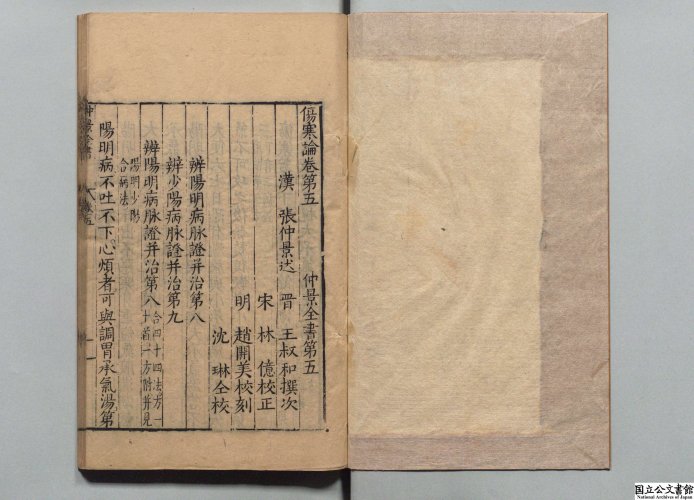 傷寒論卷第五 仲景全書第五
漢 張仲景述 晉 王叔和撰次
宋 林 億校正
明 趙開美校刻
沈 琳仝校
辨陽明病脉證并治第八
辨少陽病脉證并治第九
辨陽明病脉證并治第八 合四十四法方一
十首一方附并見
陽明少陽
合病法
陽明病不吐不下心煩者可與調胃承氣湯第
仲景全書
卷五
一
国立公文書館
National Archives of Japan